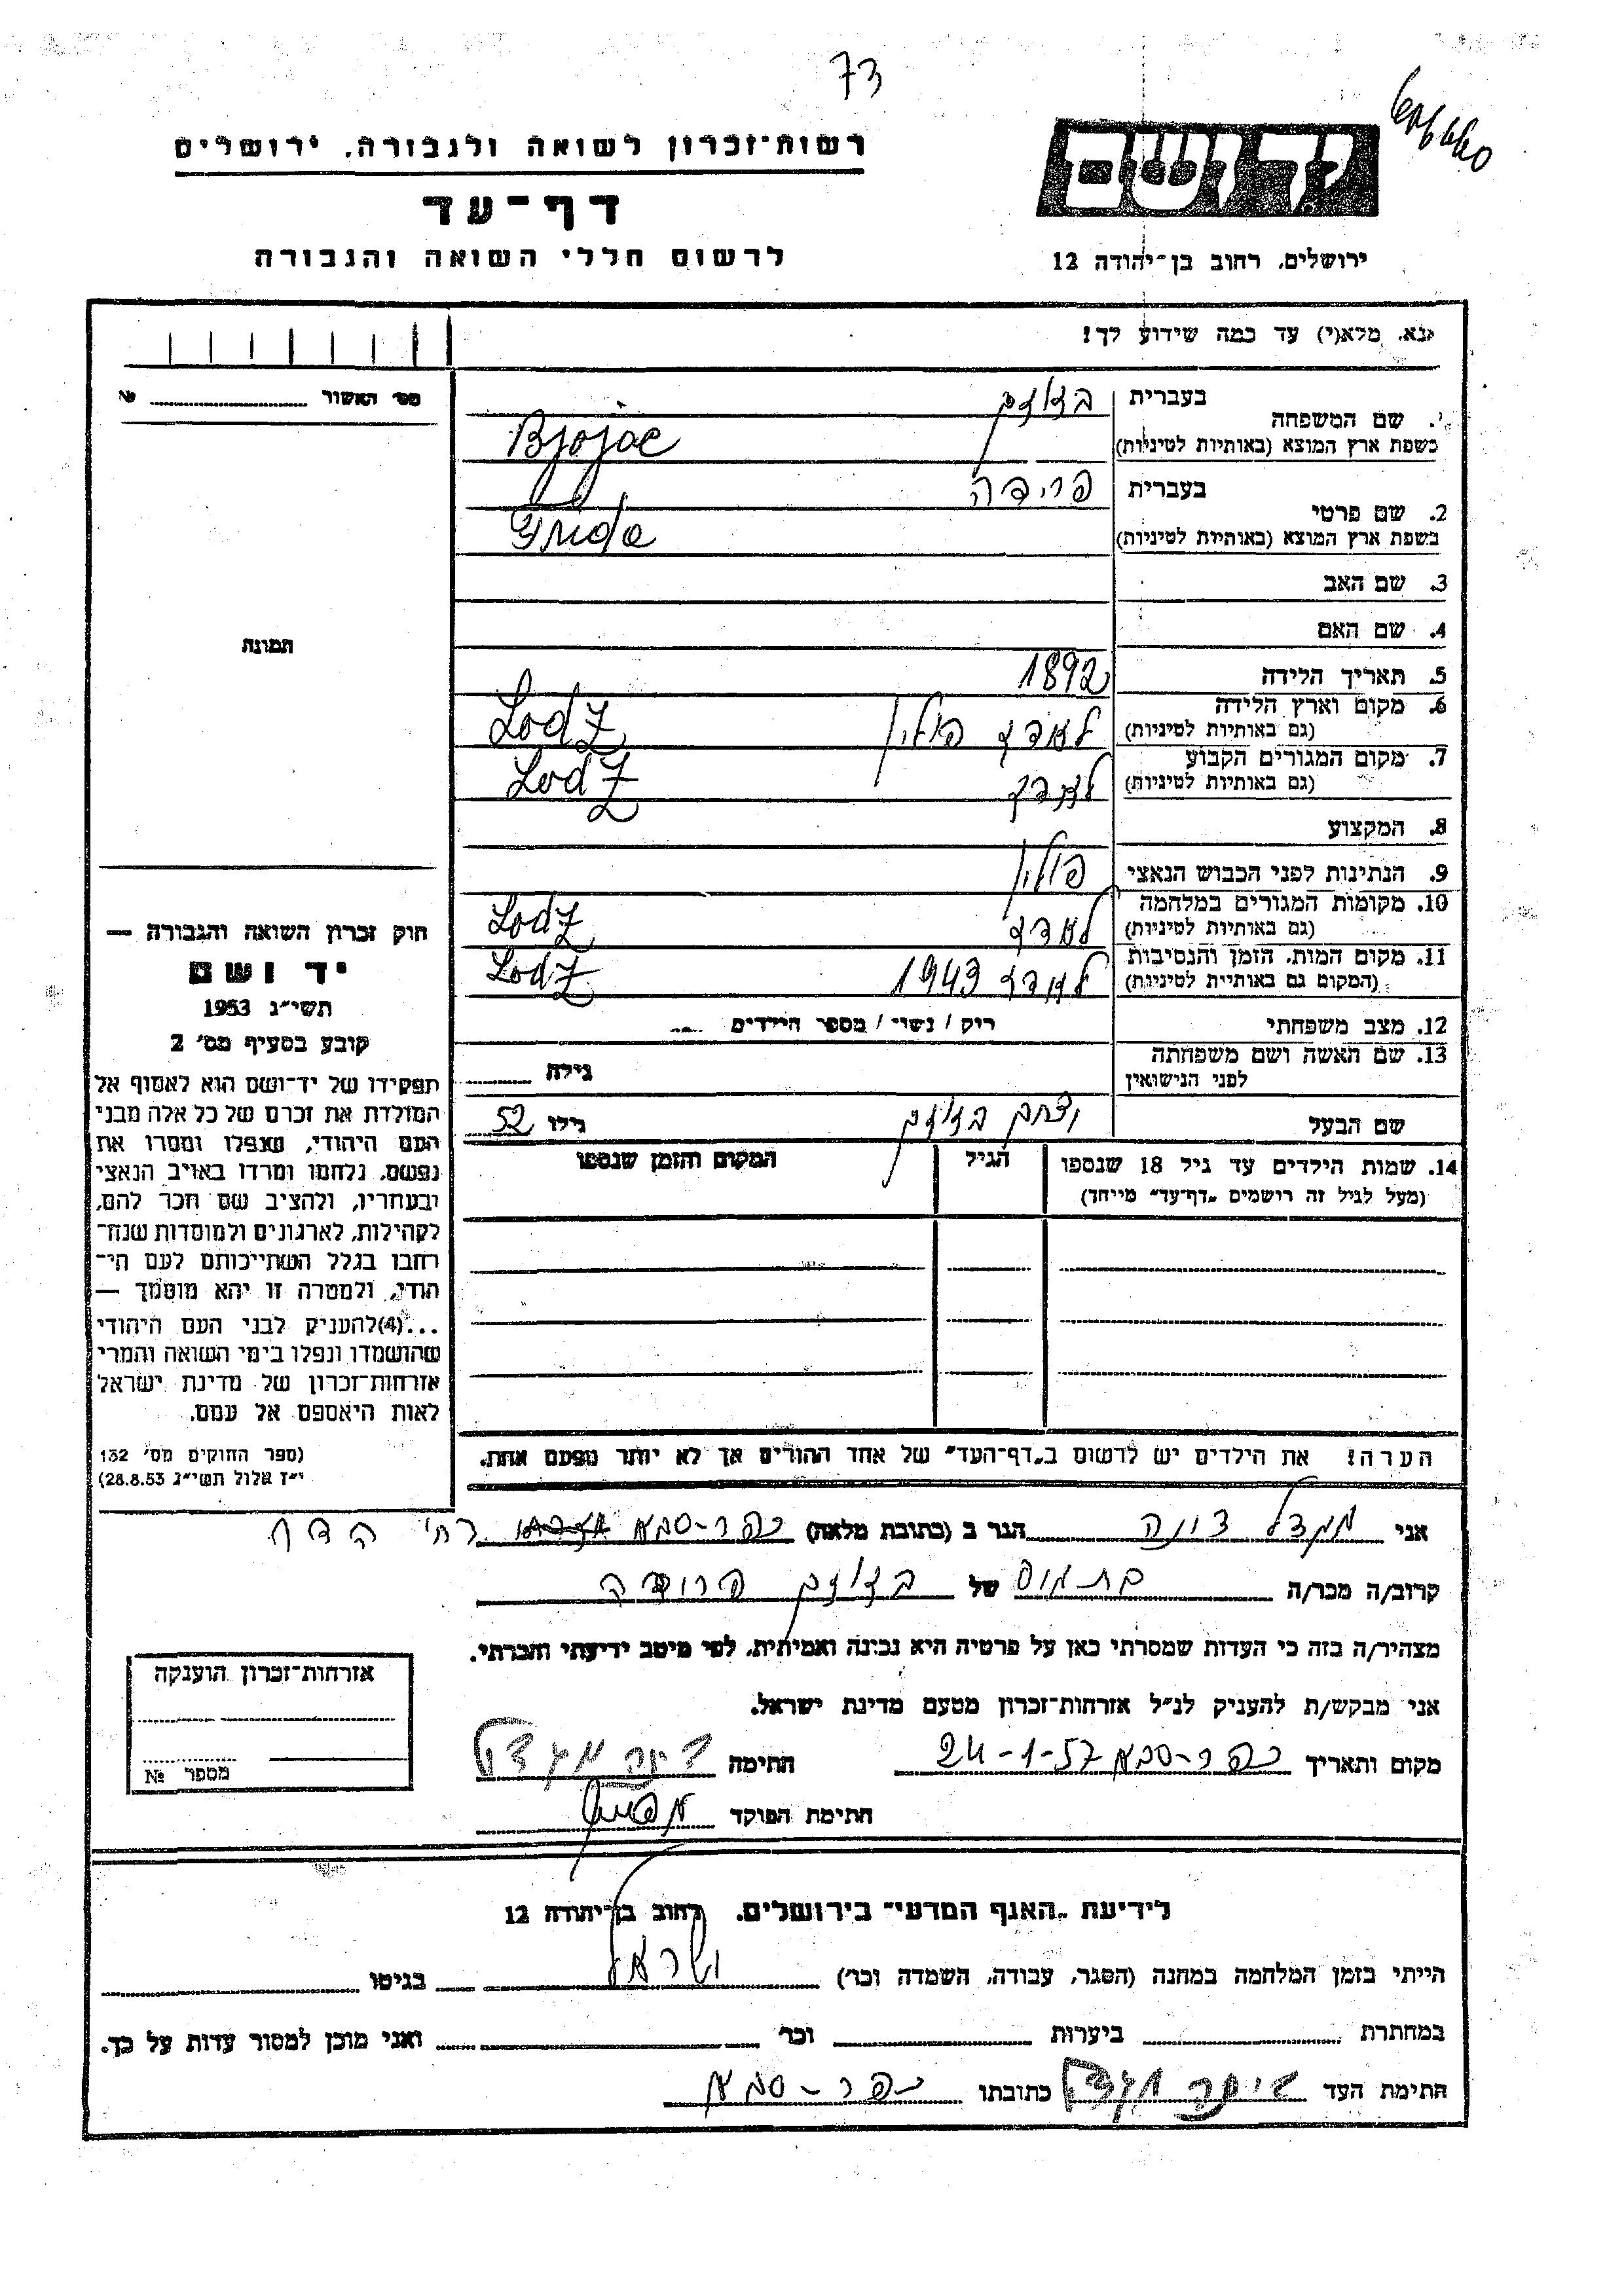 73
רשות-זכרון לשואה ולגבורה, ירושלים
דף-עד
לרשום חללי השואה והגבורה
יד ושם
ירושלים, רחוב בן-יהודה 12
נא, מלא(י) עד כמה שידוע לך!
מס' האשור №
1. שם המשפחה בעברית
בשפת ארץ המוצא (באותיות לטיניות) Bjojac
2. שם פרטי בעברית פרידה
בשפת ארץ המוצא (באותיות לטיניות) Frida
3. שם האב
4. שם האם
תמונה
5. תאריך הלידה 1892
6. מקום וארץ הלידה
(גם באותיות לטיניות) לודז פולין Lodz
7. מקום המגורים הקבוע
(גם באותיות לטיניות) לודז Lodz
8. המקצוע
9. הנתינות לפני הכבוש הנאצי פולין
10. מקומות המגורים במלחמה
(גם באותיות לטיניות) לודז Lodz
11. מקום המות, הזמן והנסיבות
(המקום גם באותיות לטיניות) לודז 1943 Lodz
12. מצב משפחתי רוק / נשוי / מספר הילדים
13. שם האשה ושם משפחתה
לפני הנישואין גילה
שם הבעל יצחק גילו 52
14. שמות הילדים עד גיל 18 שנספו
(מעל לגיל זה רושמים "דף-עד" מיוחד)
הגיל
המקום והזמן שנספו
חוק זכרון השואה והגבורה —
יד ושם
תשי"ג 1953
קובע בסעיף מס' 2
תפקידו של יד-ושם הוא לאסוף אל
המולדת את זכרם של כל אלה מבני
העם היהודי, שנפלו ומסרו את
נפשם, נלחמו ומרדו באויב הנאצי
ובעוזריו, ולהציב שם וזכר להם,
לקהילות, לארגונים ולמוסדות שנח-
רבו בגלל השתייכותם לעם הי-
הודי, ולמטרה זו יהא מוסמך —
...(4) להעניק לבני העם היהודי
שהושמדו ונפלו בימי השואה והמרי
אזרחות-זכרון של מדינת ישראל
לאות היאספם אל עמם.
(ספר החוקים מס' 132
י"ז אלול תשי"ג 28.8.53)
הערה! את הילדים יש לרשום ב"דף-העד" של אחד ההורים אך לא יותר מפעם אחת.
אני הגר ב (כתובת מלאה) כפר-סבא
קרוב/ה מכר/ה של פרידה
מצהיר/ה בזה כי העדות שמסרתי כאן על פרטיה היא נכונה ואמיתית, לפי מיטב ידיעתי והכרתי.
אני מבקש/ת להעניק לנ"ל אזרחות-זכרון מטעם מדינת ישראל.
מקום ותאריך כפר-סבא 24-1-57 חתימה
חתימת הפוקד
אזרחות-זכרון הוענקה
מספר №
לידיעת "האגף המדעי" בירושלים, רחוב בן-יהודה 12
הייתי בזמן המלחמה במחנה (הסגר, עבודה, השמדה וכו') ישראל בגיטו
במחתרת ביערות וכו' ואני מוכן למסור עדות על כך.
חתימת העד כתובתו כפר-סבא